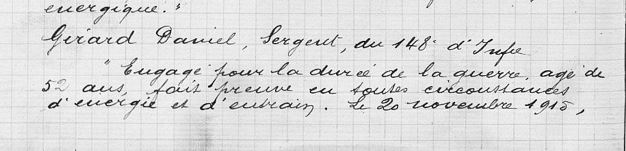 énergique."
Girard Daniel, Sergent, du 148e d'Infie
"Engagé pour la durée de la guerre, agé de
52 ans, fait preuve en toutes circonstances
d'énergie et d'entrain. Le 20 novembre 1915,